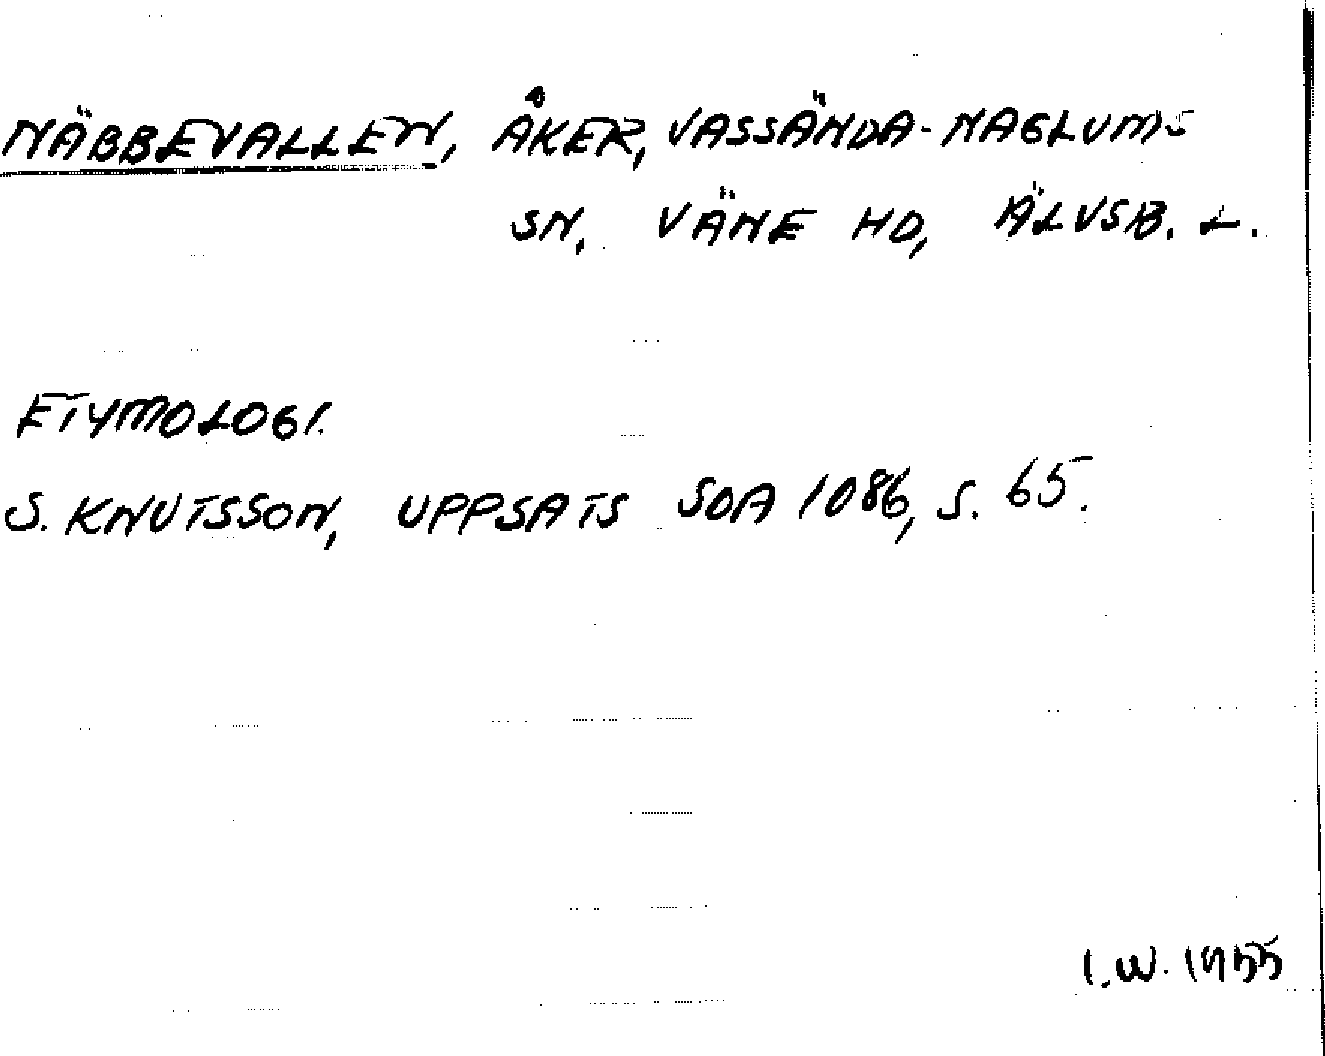 NÄBBEVALLEN, ÅKER, VASSÄNDA-NAGLUMS
SN, VÄNE HD, ÄLVSB. L.
ETYMOLOGI.
S. KNUTSSON, UPPSATS SOA 1086, S. 65.
I.W. 1955